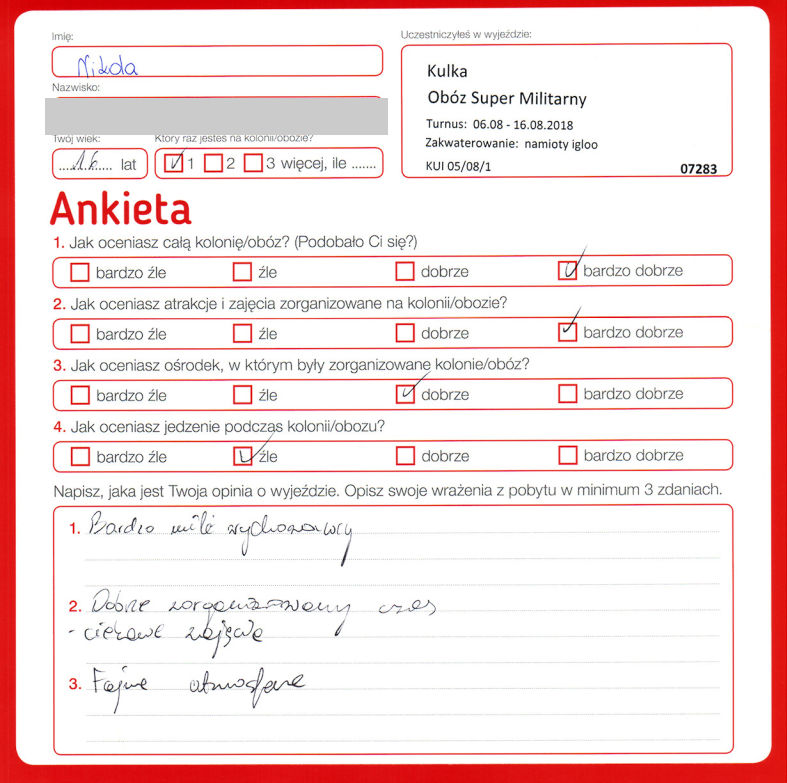 Imię:
Nikola
Nazwisko:
Twój wiek:
16 lat
Który raz jesteś na kolonii/obozie?
1 2 3 więcej, ile .......
Uczestniczyłeś w wyjeździe:
Kulka
Obóz Super Militarny
Turnus: 06.08 - 16.08.2018
Zakwaterowanie: namioty igloo
KUI 05/08/1 07283
Ankieta
1. Jak oceniasz całą kolonię/obóz? (Podobało Ci się?)
bardzo źle źle dobrze bardzo dobrze
2. Jak oceniasz atrakcje i zajęcia zorganizowane na kolonii/obozie?
bardzo źle źle dobrze bardzo dobrze
3. Jak oceniasz ośrodek, w którym były zorganizowane kolonie/obóz?
bardzo źle źle dobrze bardzo dobrze
4. Jak oceniasz jedzenie podczas kolonii/obozu?
bardzo źle źle dobrze bardzo dobrze
Napisz, jaka jest Twoja opinia o wyjeździe. Opisz swoje wrażenia z pobytu w minimum 3 zdaniach.
1. Bardzo mili wychowawcy
2. Dobrze zorganizowany czas
- ciekawe zajęcia
3. Fajne atmosfera